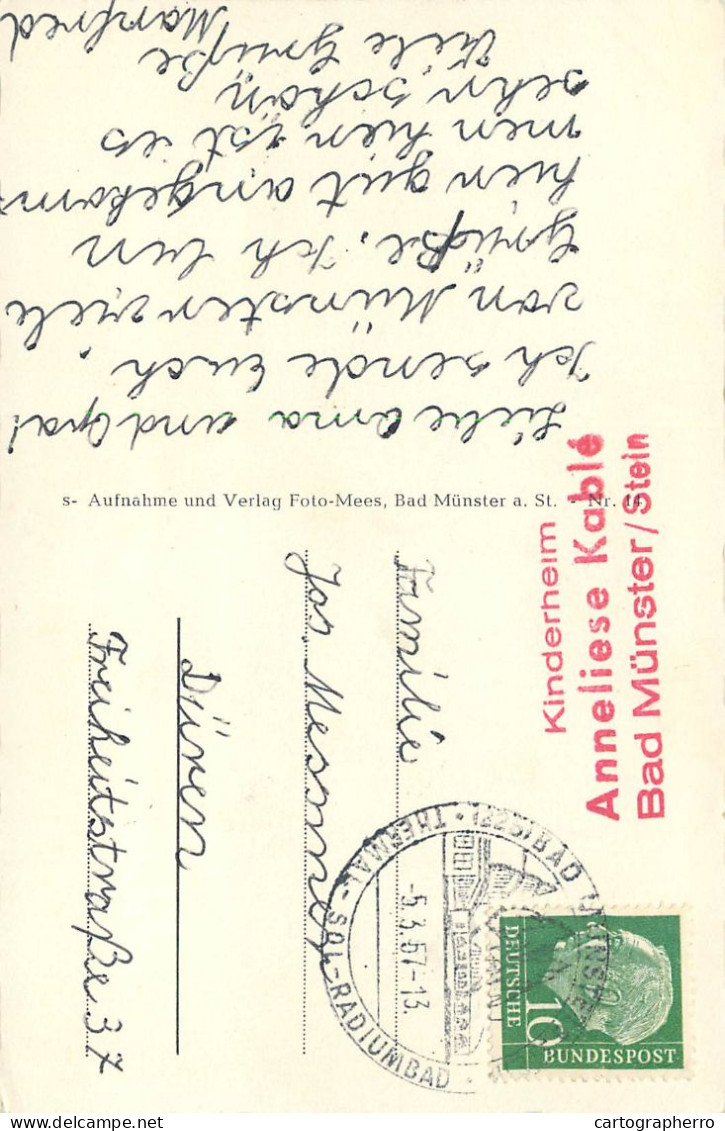 Liebe Oma und Opa!
Ich sende Euch
von Münster viele
Grüße. Ich bin
hier gut angekom-
men hier ist es
sehr schön
Viele Grüße
Manfred
s- Aufnahme und Verlag Foto-Mees, Bad Münster a. St. - Nr. 14
Kinderheim
Anneliese Kablé
Bad Münster/Stein
Familie
Jos. Messner
Düren
Freiheitstraße 37
(22b) BAD MÜNSTER
THERMAL-SOL-RADIUMBAD
-5.3.57-13
DEUTSCHE
BUNDESPOST
10
cartographerro